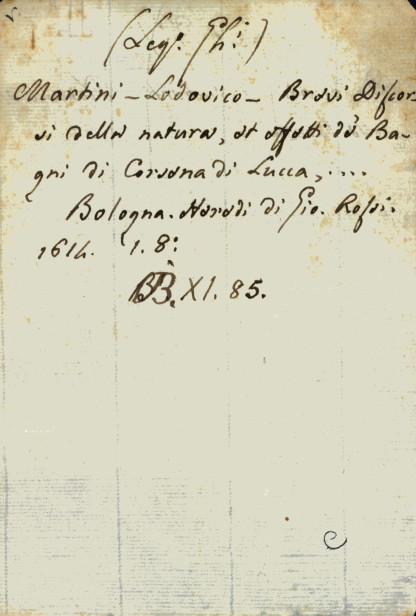 (Leg.e Gh.i)
Martini - Lodovico - Brevi Discor-
si della natura, et effetti de' Ba-
gni di Corsena di Lucca, ....
Bologna. Heredi di Gio. Rossi.
1614. 1. 8:
BB. XI. 85.